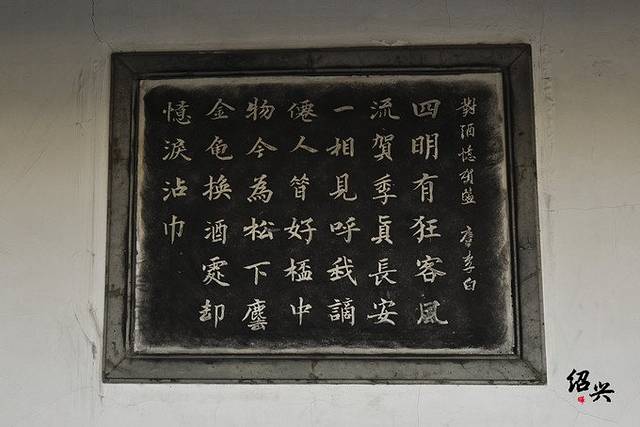 對酒憶賀監 唐 李白
四明有狂客風
流賀季眞長安
一相見呼我謫
僊人昔好桮中
物今為松下塵
金龜換酒處却
憶淚沾巾
绍兴